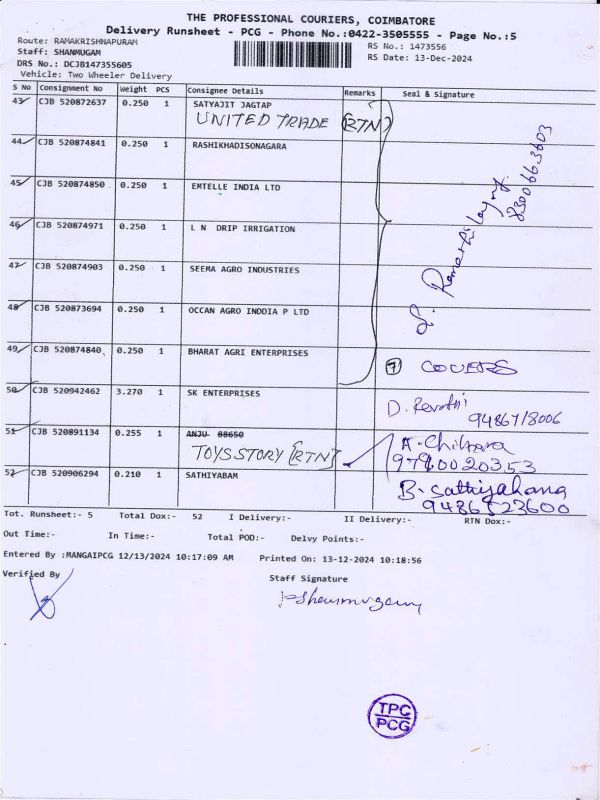 THE PROFESSIONAL COURIERS, COIMBATORE
Delivery Runsheet - PCG - Phone No.:0422-3505555 - Page No.:5
Route: RAMAKRISHNAPURAM
RS No.: 1473556
Staff: SHANMUGAM
RS Date: 13-Dec-2024
DRS No.: DCJB147355605
Vehicle: Two Wheeler Delivery
S No Consignment No Weight PCS Consignee Details Remarks Seal & Signature
43 CJB 520872637 0.250 1 SATYAJIT JAGTAP
UNITED TRADE (RTN)
44 CJB 520874841 0.250 1 RASHIKHADISONAGARA
45 CJB 520874850 0.250 1 EMTELLE INDIA LTD
46 CJB 520874971 0.250 1 L N DRIP IRRIGATION
47 CJB 520874903 0.250 1 SEEMA AGRO INDUSTRIES
48 CJB 520873694 0.250 1 OCCAN AGRO INDDIA P LTD
8300663603
49 CJB 520874840 0.250 1 BHARAT AGRI ENTERPRISES
7 COVERS
50 CJB 520942462 3.270 1 SK ENTERPRISES
D. Revathi
9486718006
51 CJB 520891134 0.255 1 ANJU 88650
TOYS STORY (RTN)
A. Chithara
9790020353
52 CJB 520906294 0.210 1 SATHIYABAM
B. Sathiyabama
9486523600
Tot. Runsheet:- 5 Total Dox:- 52 I Delivery:- II Delivery:- RTN Dox:-
Out Time:- In Time:- Total POD:- Delvy Points:-
Entered By :MANGAIPCG 12/13/2024 10:17:09 AM Printed On: 13-12-2024 10:18:56
Verified By Staff Signature
P Shanmugam
TPC
PCG